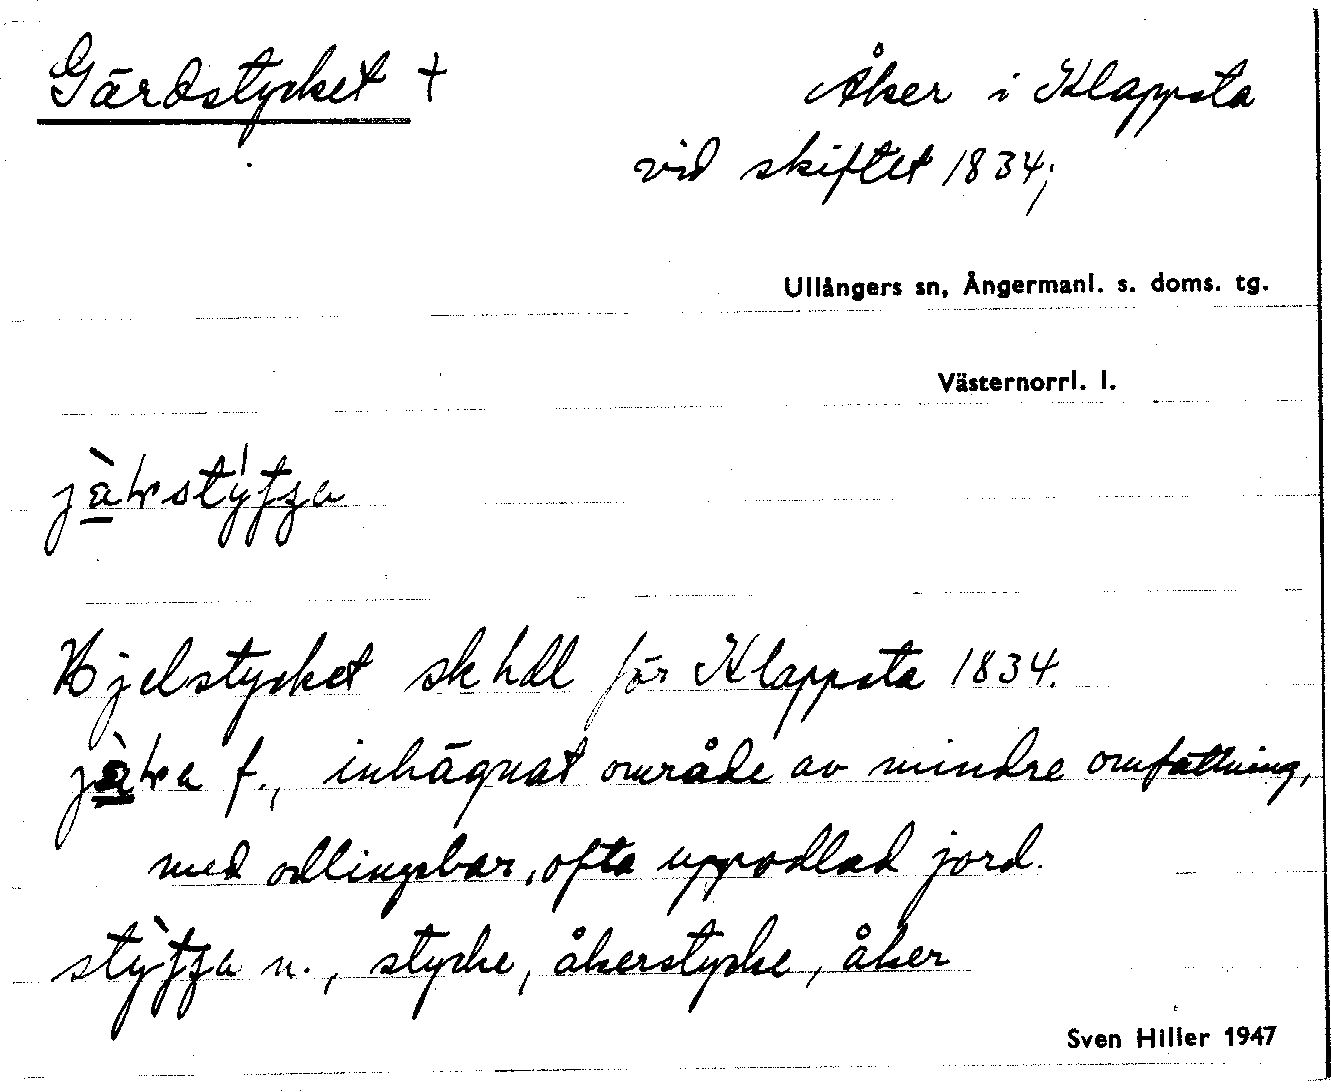 Gärdstycket +
Åker i Klappsta
vid skiftet 1834;
Ullångers sn, Ångermanl. s. doms. tg.
Västernorrl. l.
Hjelstycket sk hdl för Klappsta 1834.
f., inhägnat område av mindre omfattning,
med odlingsbar, ofta uppodlad jord.
n., stycke, åkerstycke, åker
Sven Hiller 1947